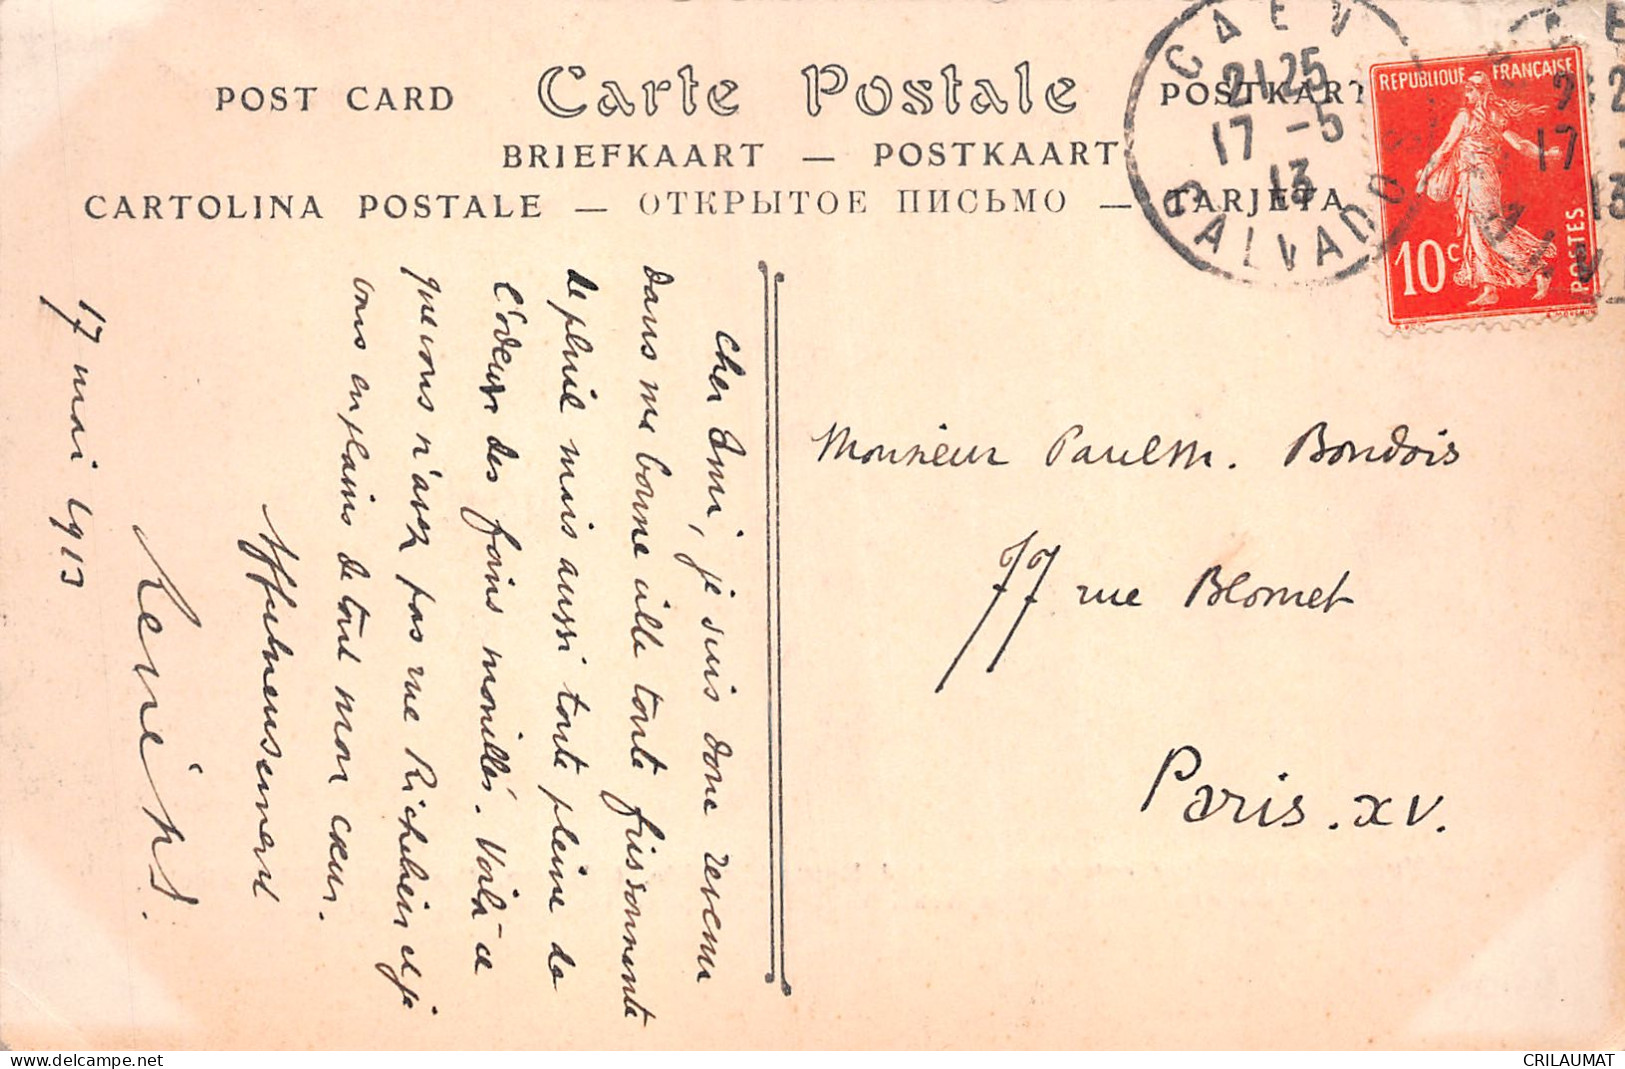 POST CARD Carte Postale POSTKART
BRIEFKAART — POSTKAART
CARTOLINA POSTALE — ОТКРЫТОЕ ПИСЬМО — TARJETA
CAEN
21 25
17 -5
13
CALVADOS
REPUBLIQUE FRANÇAISE
10c
POSTES
17 -
13
Cher Ami, je suis donc revenu
dans ma bonne ville toute frissonnante
de pluie mais aussi toute pleine de
l'odeur des foins mouillés. Voilà ce
que vous n'avez pas rue Richelieu et je
vous en plains de tout mon cœur.
Affectueusement
René
17 mai 1913
Monsieur Paul M. Bondois
77 rue Blomet
Paris. XV.
CRILAUMAT